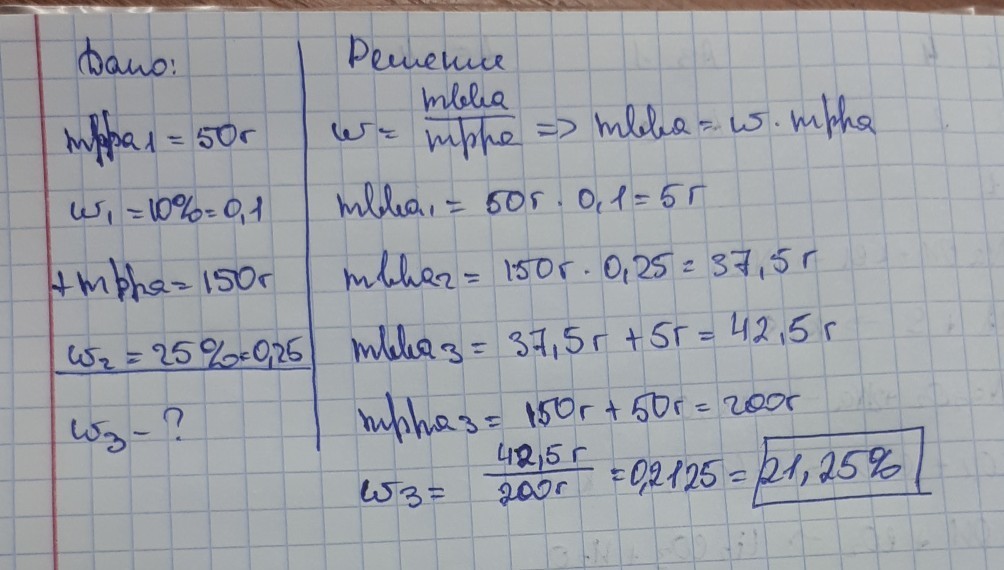 Дано:
mрра1 = 50г
ω₁ = 10% = 0,1
+mрра = 150г
ω₂ = 25% = 0,25
ω₃ - ?
Решение
ω = mвва / mрра => mвва = ω · mрра
mвва₁ = 50г · 0,1 = 5г
mвва₂ = 150г · 0,25 = 37,5г
mвва₃ = 37,5г + 5г = 42,5г
mрра₃ = 150г + 50г = 200г
ω₃ = 42,5г / 200г = 0,2125 = 21,25%